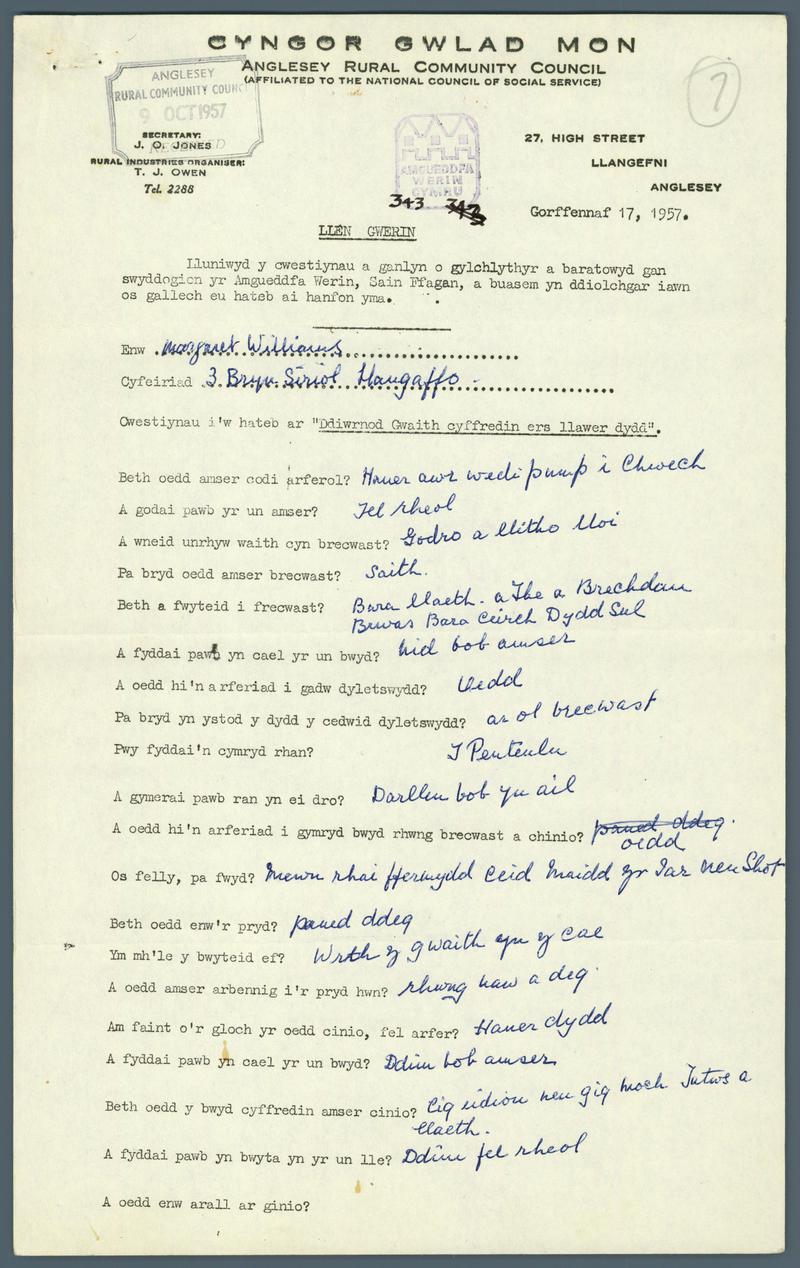 CYNGOR GWLAD MON
ANGLESEY RURAL COMMUNITY COUNCIL
(AFFILIATED TO THE NATIONAL COUNCIL OF SOCIAL SERVICE)
ANGLESEY
RURAL COMMUNITY COUNC
9 OCT 1957
7
SECRETARY:
J. O. JONES
RURAL INDUSTRIES ORGANISER:
T. J. OWEN
Tel. 2288
AMGUEDDFA
WERIN
CYMRU
343
27, HIGH STREET
LLANGEFNI
ANGLESEY
Gorffennaf 17, 1957.
LLEN GWERIN
Lluniwyd y cwestiynau a ganlyn o gylchlythyr a baratowyd gan
swyddogion yr Amgueddfa Werin, Sain Ffagan, a buasem yn ddiolchgar iawn
os gallech eu hateb ai hanfon yma.
Enw Margaret Williams
Cyfeiriad 3 Bryn Siriol Llangaffo -
Cwestiynau i'w hateb ar "Ddiwrnod Gwaith cyffredin ers llawer dydd".
Beth oedd amser codi arferol? Haner awr wedi pump i Chwech
A godai pawb yr un amser? Fel rheol
A wneid unrhyw waith cyn brecwast? Godro a llitho lloi
Pa bryd oedd amser brecwast? Saith.
Beth a fwyteid i frecwast? Bara llaeth. a The a Brechdan
Brwas Bara Ceirch Dydd Sul
A fyddai pawb yn cael yr un bwyd? Nid bob amser
A oedd hi'n arferiad i gadw dyletswydd? Oedd
Pa bryd yn ystod y dydd y cedwid dyletswydd? ar ol brecwast
Pwy fyddai'n cymryd rhan? Y Penteulu
A gymerai pawb ran yn ei dro? Darllen bob yn ail
A oedd hi'n arferiad i gymryd bwyd rhwng brecwast a chinio? paned ddeg.
oedd
Os felly, pa fwyd? Mewn rhai ffermydd Ceid Maidd yr Iar neu Shot
Beth oedd enw'r pryd? paned ddeg
Ym mh'le y bwyteid ef? Wrth y gwaith yn y Cae
A oedd amser arbennig i'r pryd hwn? rhwng naw a deg.
Am faint o'r gloch yr oedd cinio, fel arfer? Haner dydd
A fyddai pawb yn cael yr un bwyd? Ddim bob amser
Beth oedd y bwyd cyffredin amser cinio? Cig eidion neu gig moch Tatws a
llaeth.
A fyddai pawb yn bwyta yn yr un lle? Ddim fel rheol
A oedd enw arall ar ginio?